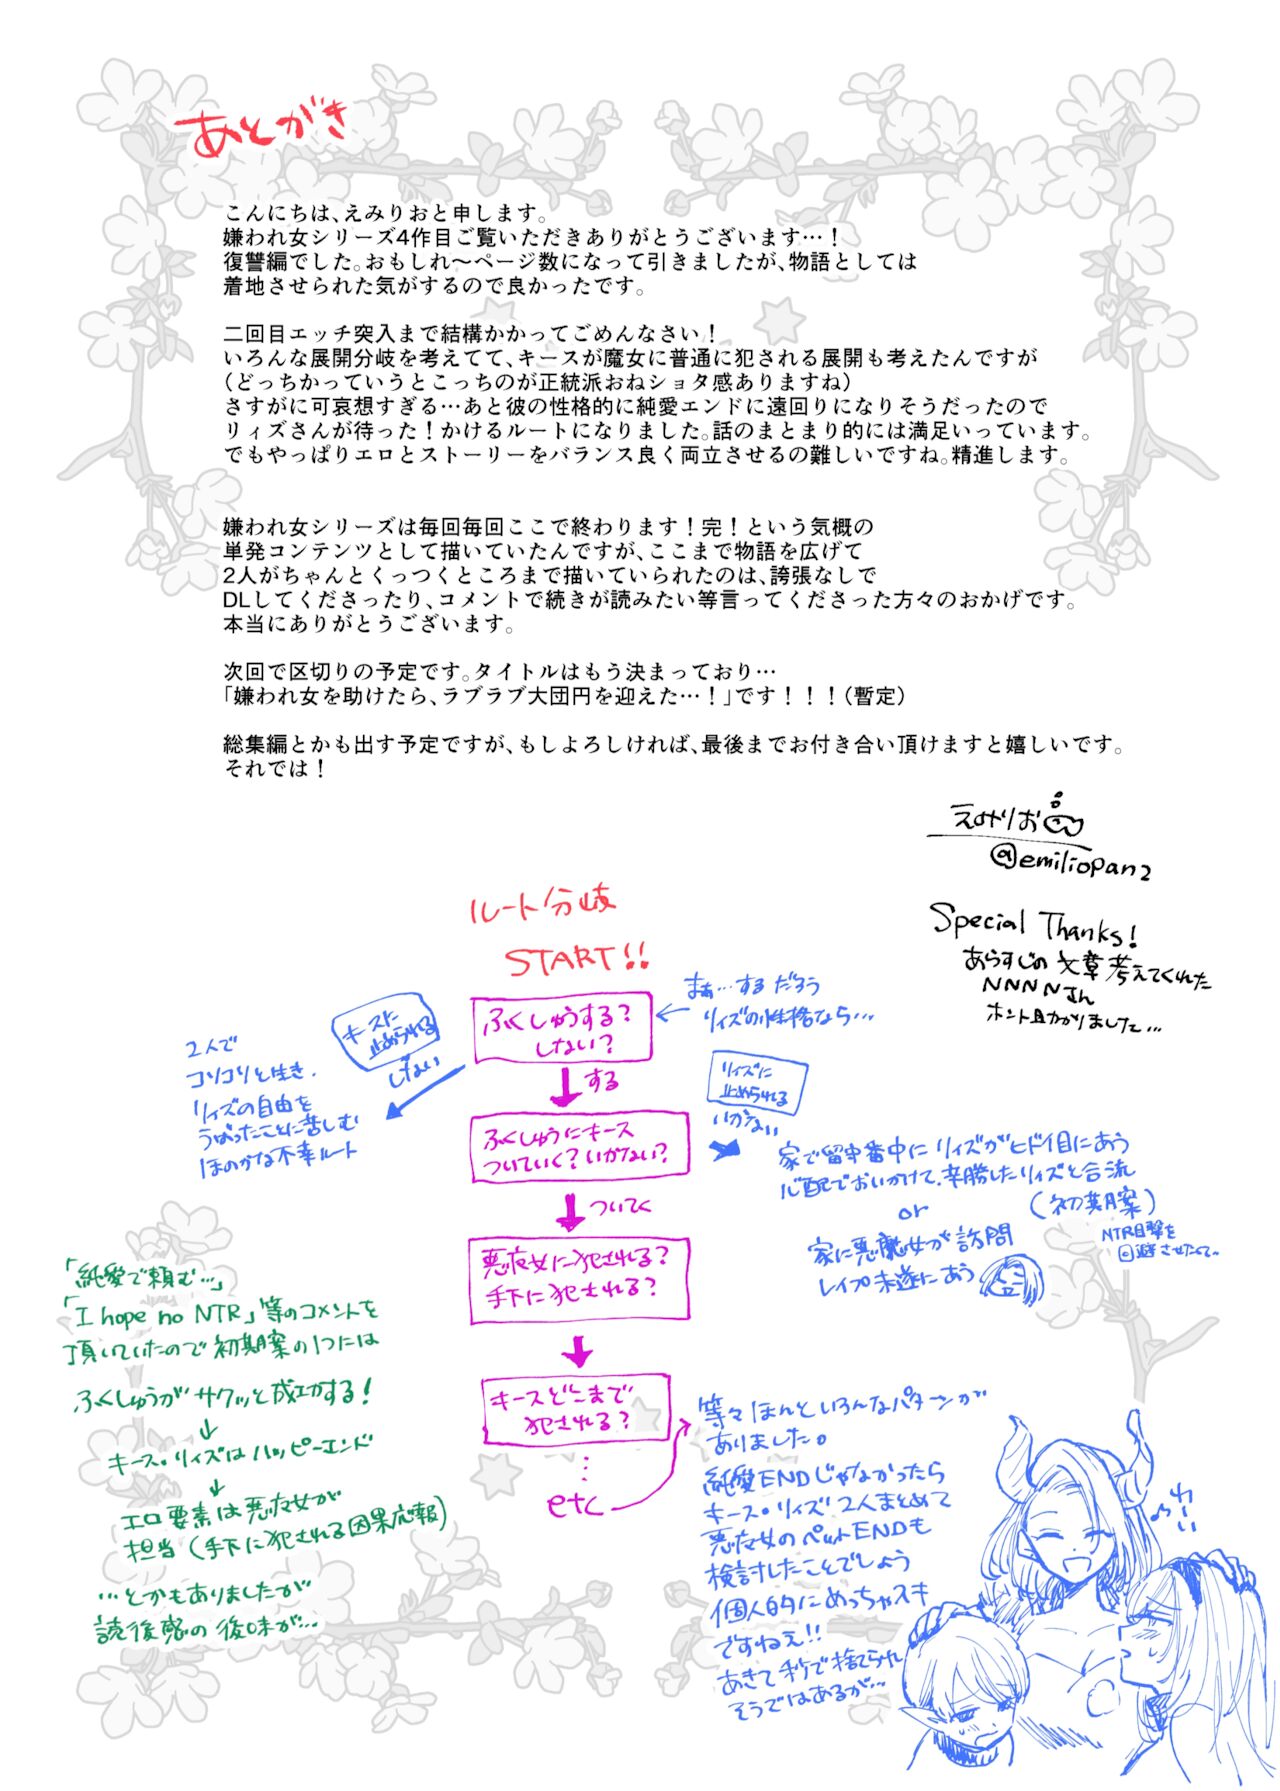 あとがき
こんにちは、えみりおと申します。
嫌われ女シリーズ4作目ご覧いただきありがとうございます…！
復讐編でした。おもしれ〜ページ数になって引きましたが、物語としては
着地させられた気がするので良かったです。
二回目エッチ突入まで結構かかってごめんなさい！
いろんな展開分岐を考えてて、キースが魔女に普通に犯される展開も考えたんですが
（どっちかっていうとこっちのが正統派おねショタ感ありますね）
さすがに可哀想すぎる…あと彼の性格的に純愛エンドに遠回りになりそうだったので
リィズさんが待った！かけるルートになりました。話のまとまり的には満足いっています。
でもやっぱりエロとストーリーをバランス良く両立させるの難しいですね。精進します。
嫌われ女シリーズは毎回毎回ここで終わります！完！という気概の
単発コンテンツとして描いていたんですが、ここまで物語を広げて
2人がちゃんとくっつくところまで描いていられたのは、誇張なしで
DLしてくださったり、コメントで続きが読みたい等言ってくださった方々のおかげです。
本当にありがとうございます。
次回で区切りの予定です。タイトルはもう決まっており…
「嫌われ女を助けたら、ラブラブ大団円を迎えた…！」です！！！（暫定）
総集編とかも出す予定ですが、もしよろしければ、最後までお付き合い頂けますと嬉しいです。
それでは！
えみりお
@emiliopan2
Special Thanks!
あらすじの文章考えてくれた
NNNNさん
ホント助かりました…
ルート分岐
START!!
ふくしゅうする？
しない？
まぁ…するだろう
リィズの性格なら…
キースに
止められる
しない
2人で
コソコソと生き、
リィズの自由を
うばったことに苦しむ
ほのかな不幸ルート
する
ふくしゅうにキース
ついていく？いかない？
リィズに
止められる
いかない
家で留守番中にリィズがヒドイ目にあう
心配でおいかけて、辛勝したリィズと合流
（初期案）
or
NTR目撃を
回避させたくて
家に悪魔女が訪問
レイプ未遂にあう
ついてく
悪魔女に犯される？
手下に犯される？
キースどこまで
犯される？
etc
「純愛で頼む…」
「I hope no NTR」等のコメントを
頂いていたので初期案の1つには
ふくしゅうがサクッと成功する！
↓
キース・リィズはハッピーエンド
↓
エロ要素は悪魔女が
担当（手下に犯される因果応報）
…とかもありましたが
読後感の後味が…
等々ほんといろんなパターンが
ありました。
純愛ENDじゃなかったら
キース・リィズ2人まとめて
悪魔女のペットENDも
検討したことでしょう
個人的にめっちゃスキ
ですねぇ!!
あきて秒で捨てられ
そうではあるが…
わーい